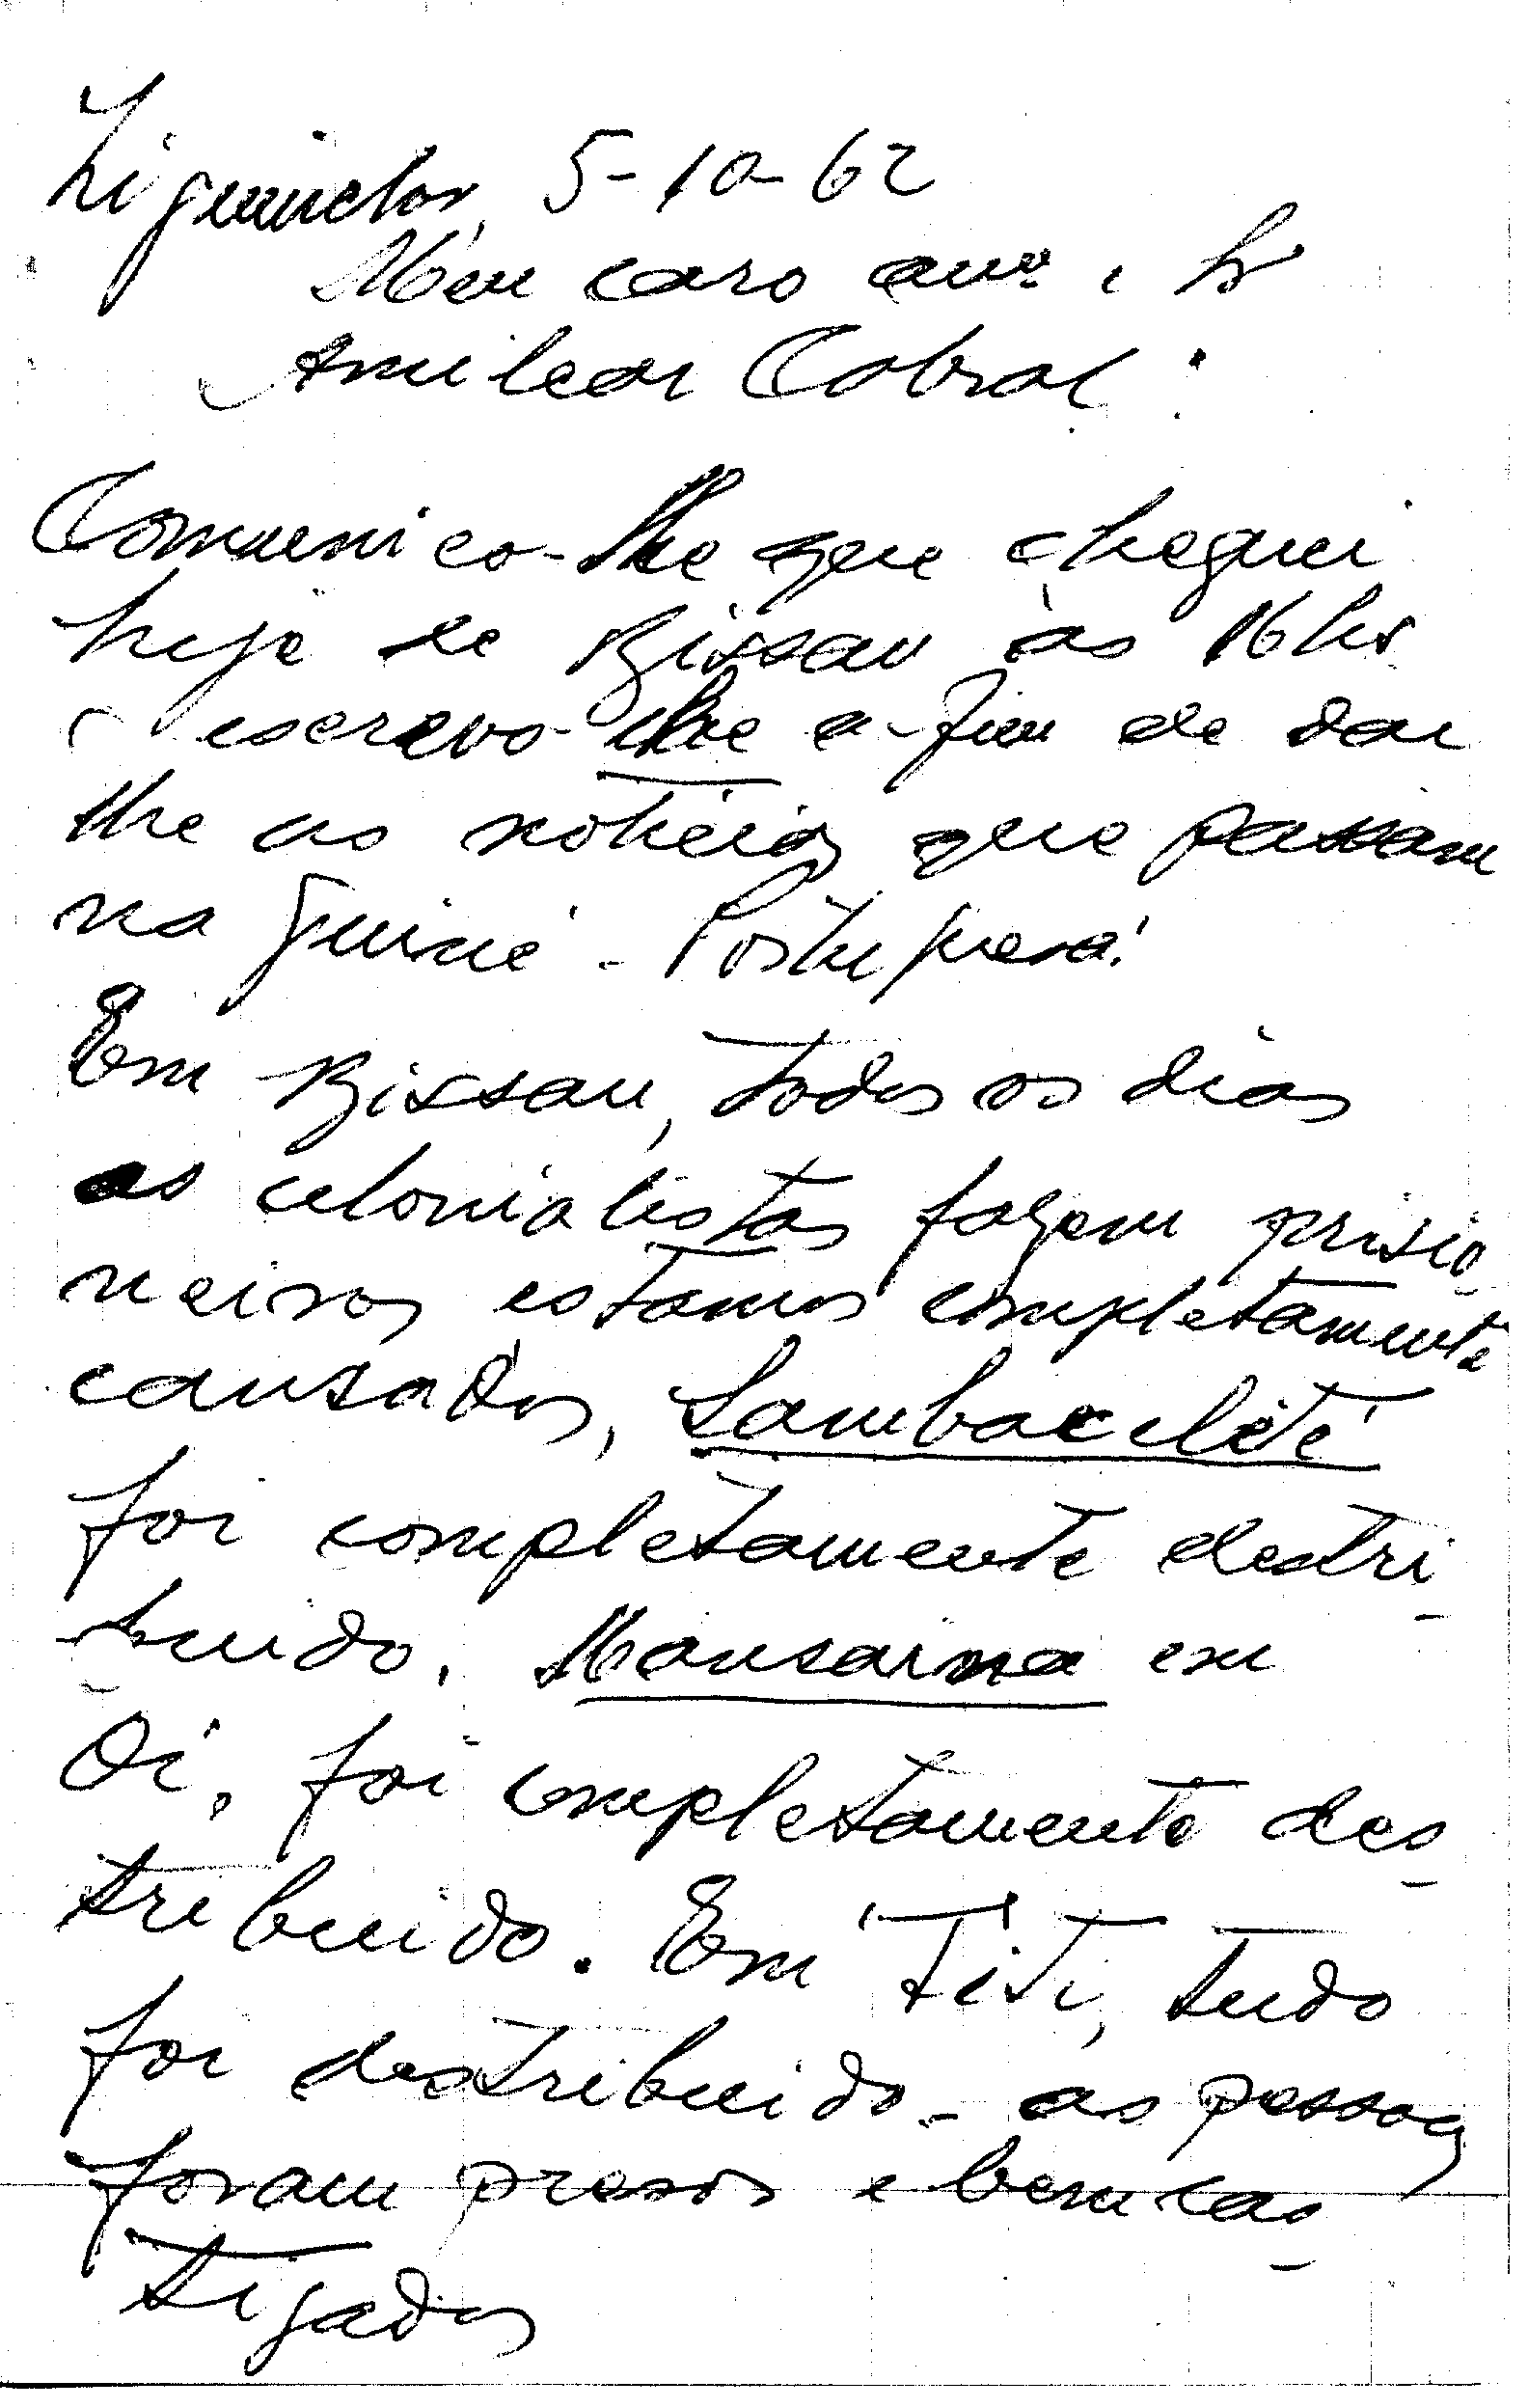 Ziguinchor, 5-10-62
Meu caro amº e Sr
Amilcar Cabral:
Comunico-lhe que cheguei
hoje de Bissau às 16 hs
e escrevo-lhe a-fim de dar
lhe as noticias que passam
na Guiné-Portuguesa!
Em Bissau, todos os dias
os colonialistas fazem prisio-
neiros estamos completamente
cansados, Sambaculeté
foi completamente destri-
buido. Mansaina em
Oi, foi completamente des-
tribuido. Em Titi, tudo
foi destribuido - as pessoas
foram presos e bem cas-
tigados